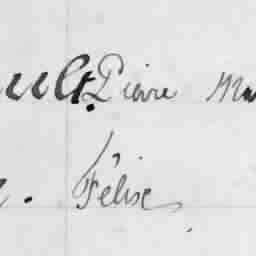 ult. Pierre Ma
. Félix